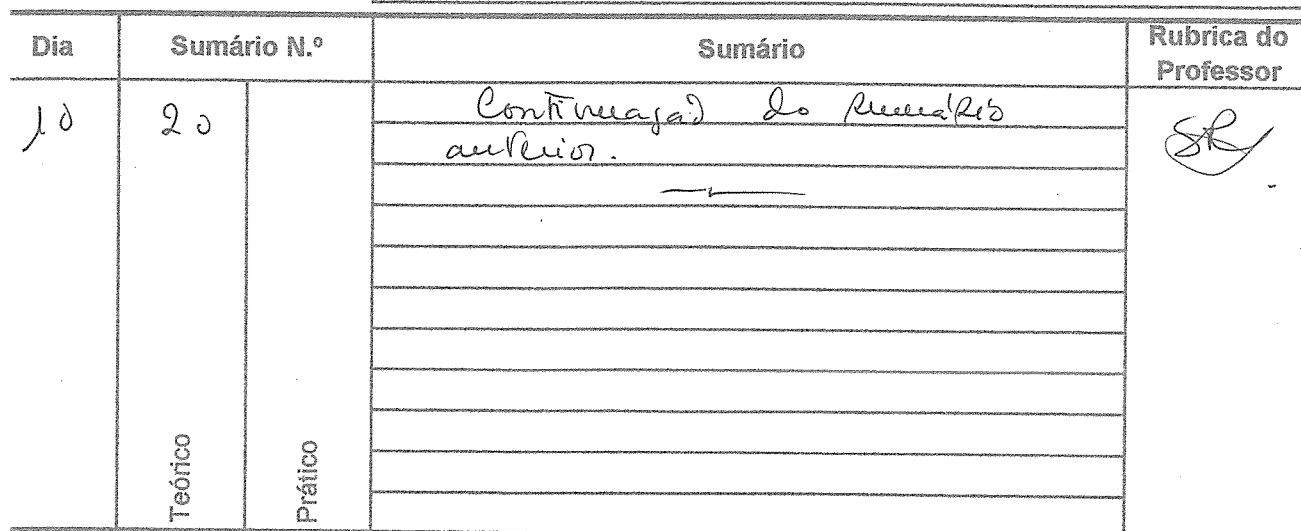 Dia Sumário N.º Sumário Rubrica do Professor
10 20 Continuação do sumário
anterior.
SR
Teórico Prático